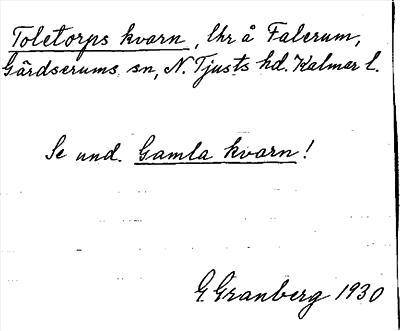 Toletorps kvarn, lhr å Falerum,
Gärdserums sn, N. Tjusts hd. Kalmar l.
Se und. Gamla kvarn!
G. Granberg 1930